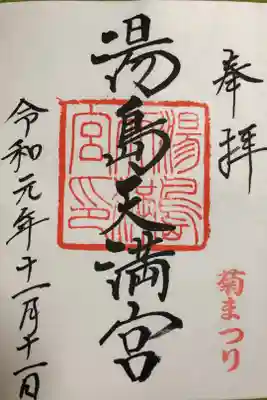 奉拝
湯島天満宮
菊まつり
令和元年十一月十一日